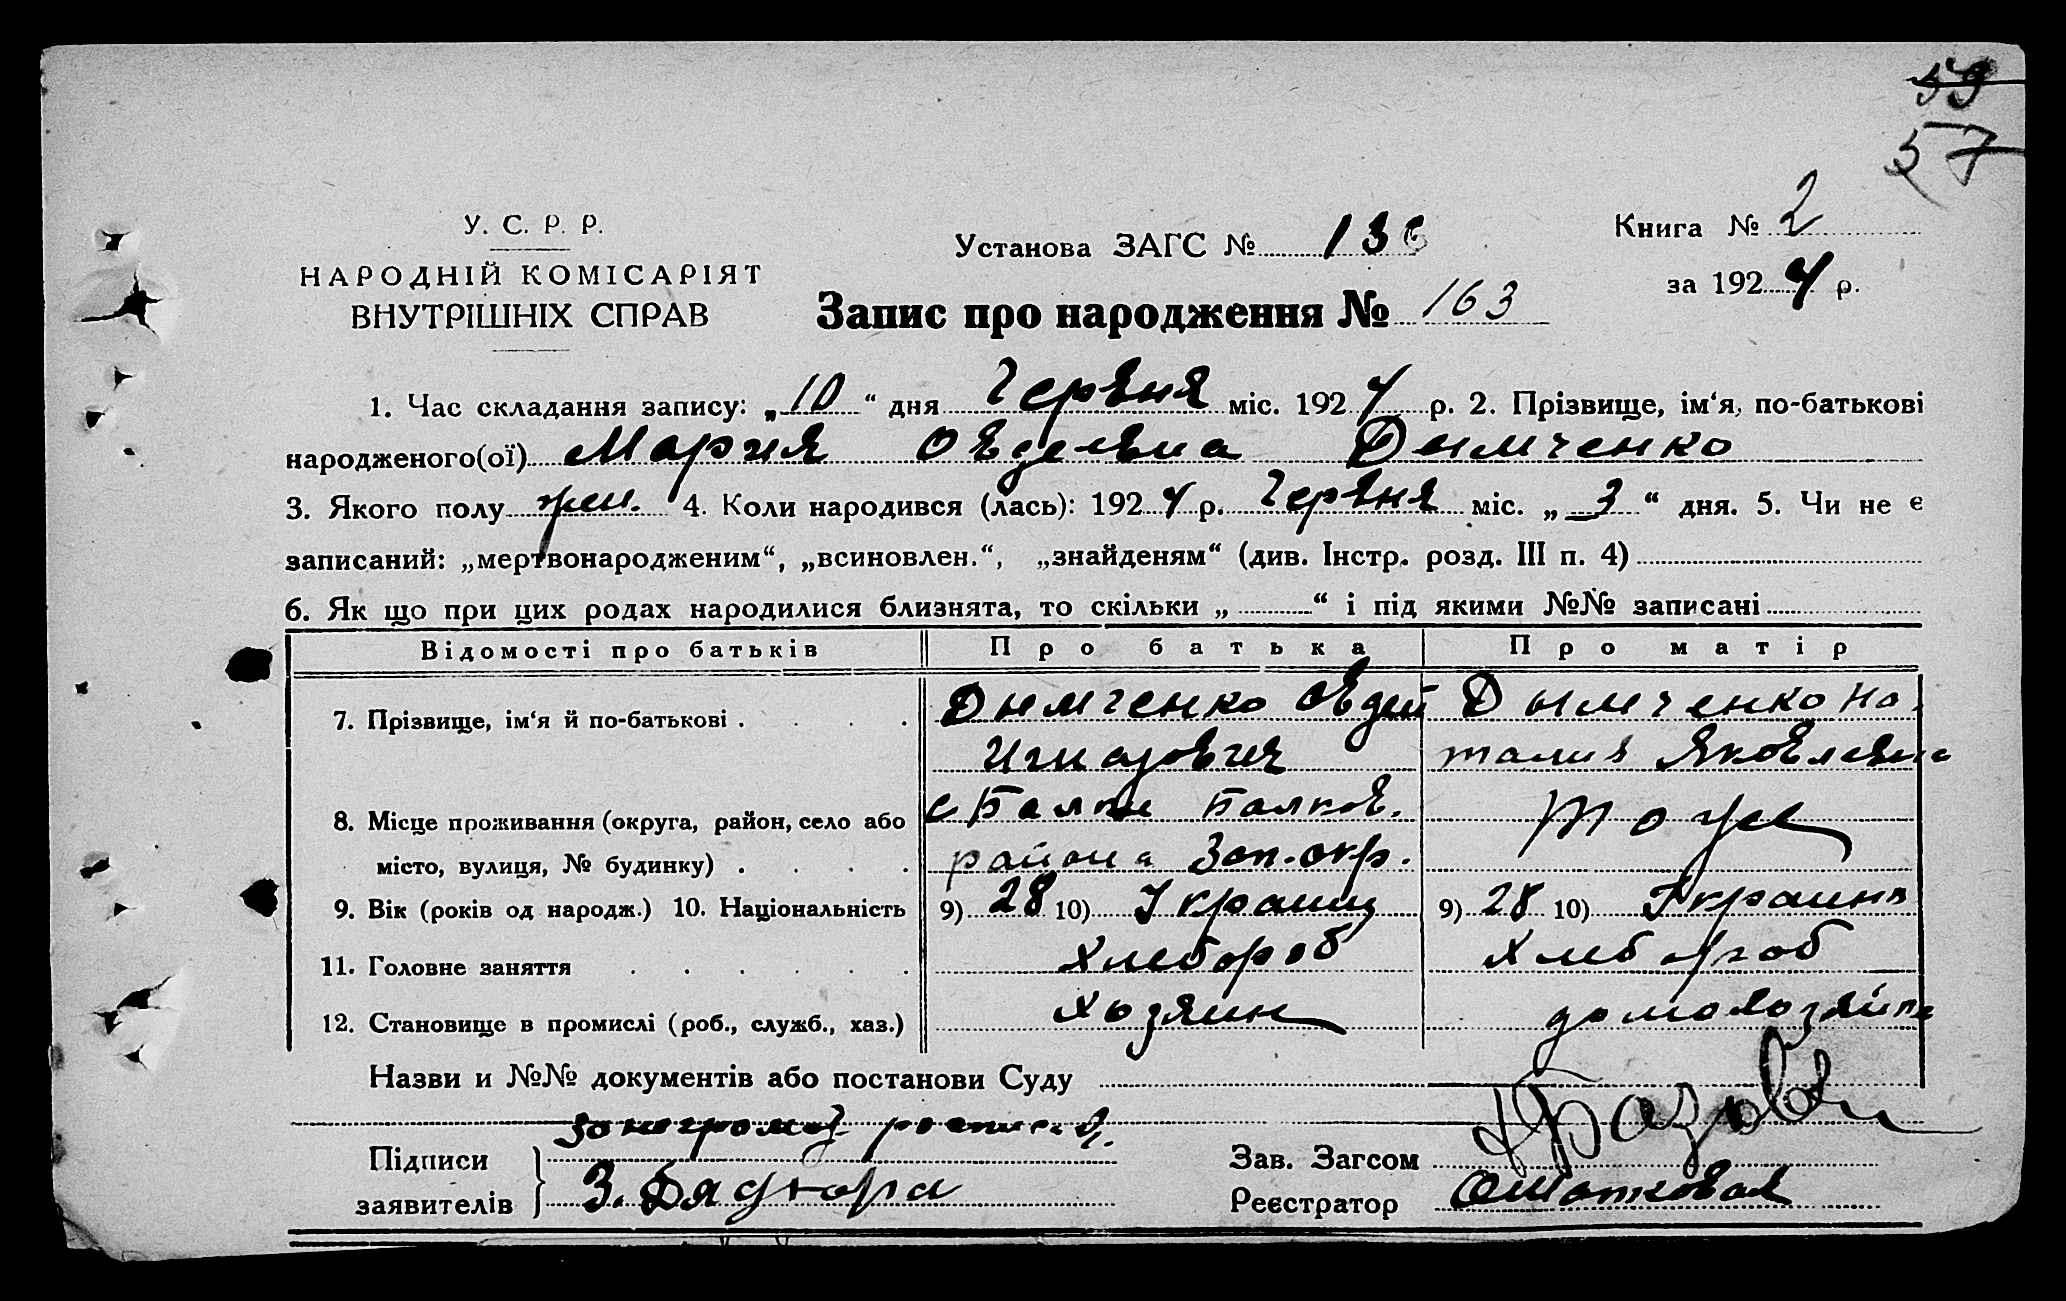 59
57
У. С. Р. Р.
НАРОДНІЙ КОМІСАРІЯТ
ВНУТРІШНІХ СПРАВ
Установа ЗАГС № 136
Книга № 2
за 1924 р.
Запис про народження № 163
1. Час складання запису: „10“ дня Червня міс. 1924 р. 2. Прізвище, ім‘я, по-батькові
народженого(ої) Мария Овделвна Дымченко
3. Якого полу жен. 4. Коли народився (лась): 1924 р. Червня міс. „3“ дня. 5. Чи не є
записаний: „мертвонародженим“, „всиновлен.“, „знайденям“ (див. Інстр. розд. III п. 4)
6. Як що при цих родах народилися близнята, то скільки „ “ і під якими №№ записані
Відомості про батьків Про батька Про матір
7. Прізвище, ім‘я й по-батькові . . . . Дымченко Овдей Дымченко На-
талия Яковлевна
8. Місце проживання (округа, район, село або с Балки Балков. Тоже
місто, вулиця, № будинку) . . . . района Зап. окр.
9. Вік (років од народж.) 10. Національність 9) 28 10) Украинц 9) 28 10) Украинк
11. Головне заняття . . . . . Хлебороб хлебороб
12. Становище в промислі (роб., служб., хаз.) Хозяин домохозяйка
Назви и №№ документів або постанови Суду
За неграмот
Підписи
заявителів З.
Зав. Загсом
Реєстратор